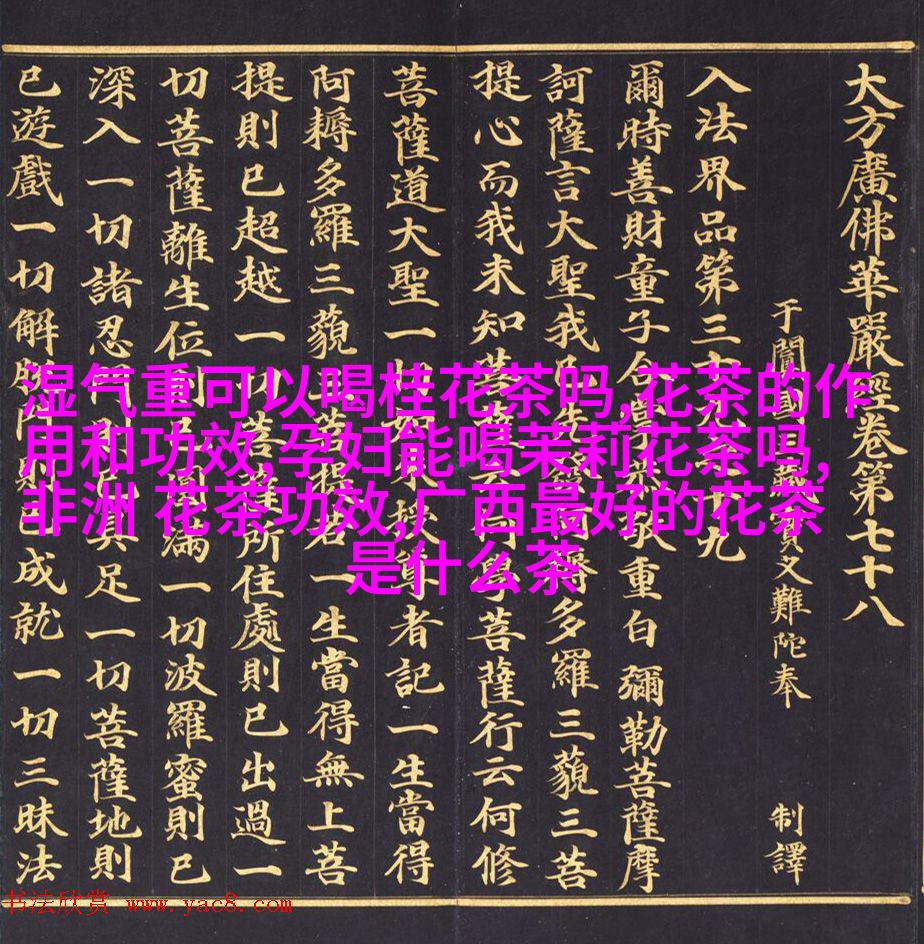 大方廣佛華嚴經卷第七十八
于闐國三藏實叉難陀奉 制譯
入法界品第三十九之十九
爾時善財童子合掌恭敬重白彌勒菩薩摩
訶薩言大聖我已先發阿耨多羅三藐三菩
提心而我未知菩薩云何學菩薩行云何修
菩薩道大聖一切如來授尊者記一生當得
阿耨多羅三藐三菩提若一生當得無上菩
提則已超越一切菩薩所住處則已出過一
切菩薩離生位則已圓滿一切波羅蜜則已
深入一切諸忍門則已具足一切菩薩地則
已遊戲一切解脫門則已成就一切三昧法
湿气重可以喝桂花茶吗,花茶的作
用和功效,孕妇能喝茉莉花茶吗,
非洲 花茶功效,广西最好的花茶
是什么茶
书法欣赏 www.yac8.com